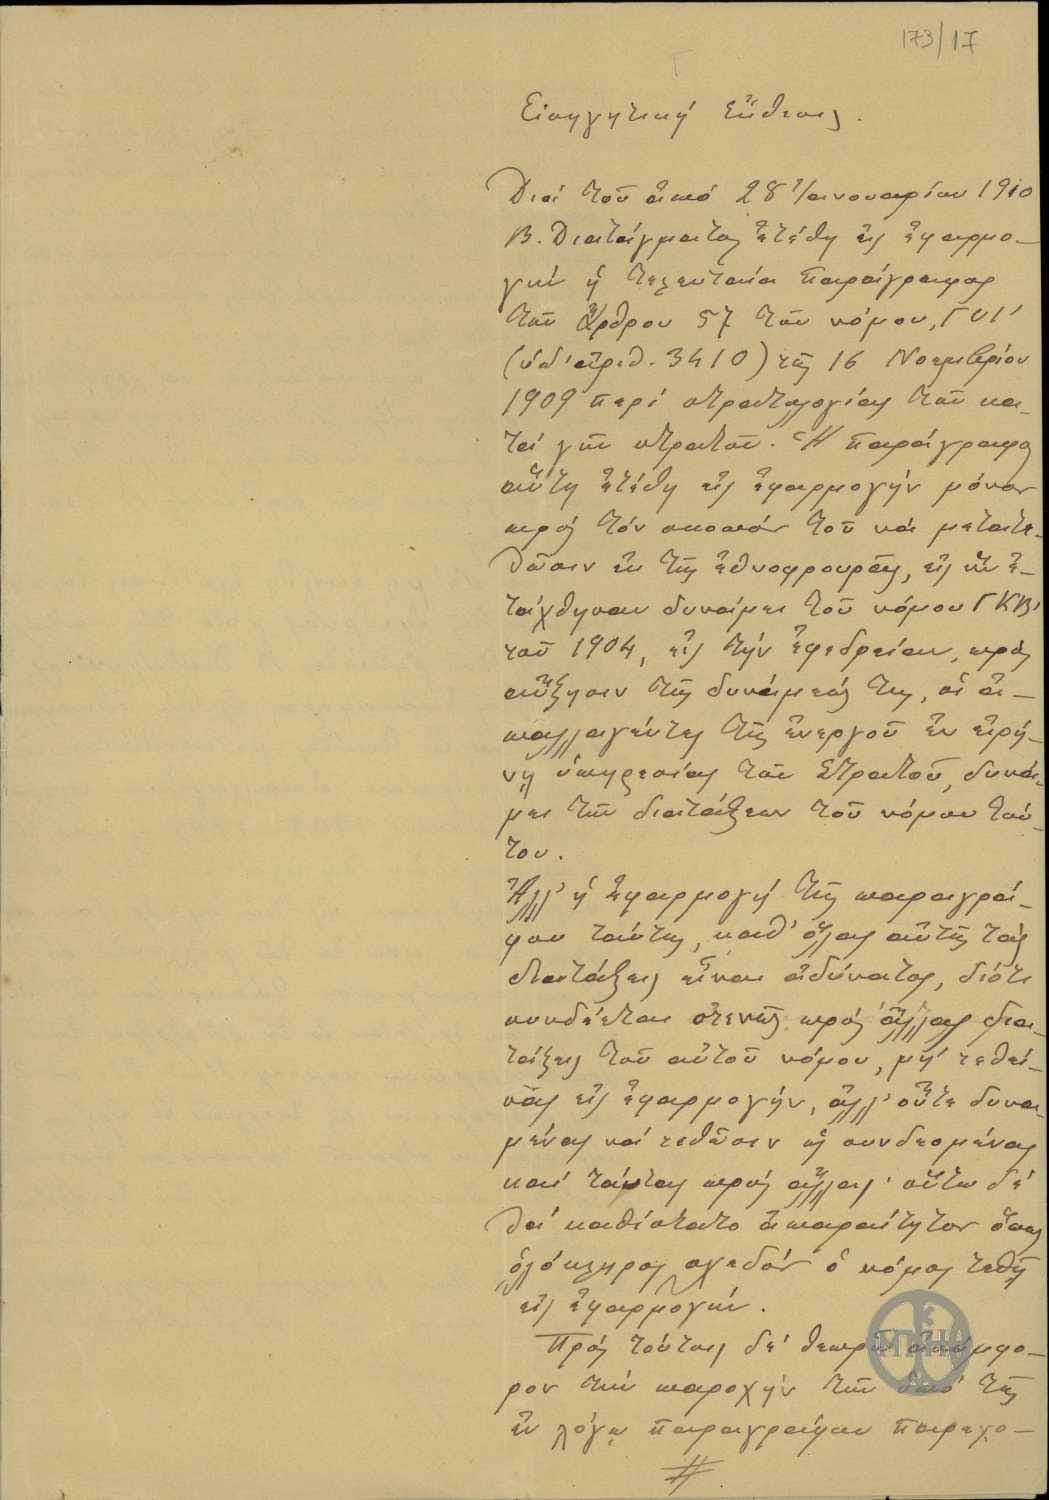 173/17
Εἰσηγητική Ἔκθεσις.
Διά τοῦ ἀπό 28 Ἰανουαρίου 1910
Β. Διατάγματος ἐτέθη εἰς ἐφαρμο-
γήν ἡ τελευταία παράγραφος
τοῦ ἄρθρου 57 τοῦ νόμου ΓΥΙ'
(ὑπ' ἀριθ. 3410) τῆς 16 Νοεμβρίου
1909 περί στρατολογίας τοῦ κα-
τά γῆν στρατοῦ. Ἡ παράγραφος
αὕτη ἐτέθη εἰς ἐφαρμογήν μόνον
πρός τόν σκοπόν τοῦ νά μετατε-
θῶσιν ἐκ τῆς ἐθνοφρουρᾶς, εἰς ἥν ἐ-
τάχθησαν δυνάμει τοῦ νόμου ΓΚΒ'
τοῦ 1904, εἰς τήν ἐφεδρείαν, πρός
αὔξησιν τῆς δυνάμεώς της, οἱ ἀ-
παλλαγέντες τῆς ἐνεργοῦ ἐν εἰρή-
νῃ ὑπηρεσίας τοῦ Στρατοῦ, δυνά-
μει τῶν διατάξεων τοῦ νόμου τού-
του.
Ἀλλ' ἡ ἐφαρμογή τῆς παραγρά-
φου ταύτης, καθ' ὅλας αὐτῆς τάς
διατάξεις εἶναι ἀδύνατος, διότι
συνδέεται στενῶς πρός ἄλλας δια-
τάξεις τοῦ αὐτοῦ νόμου, μή τεθεί-
σας εἰς ἐφαρμογήν, ἀλλ' οὔτε δυνα-
μένας νά τεθῶσιν ὡς συνδεομένας
καί ταύτας πρός ἄλλας· οὕτω δέ
θά καθίστατο ἀπαραίτητον ὅπως
ὁλόκληρος σχεδόν ὁ νόμος τεθῇ
εἰς ἐφαρμογήν.
Πρός τούτοις δέ θεωρῶ ἀσύμφο-
ρον τήν παροχήν τῶν ὑπό τῆς
ἐν λόγῳ παραγράφου παρεχο-
ΜΠΕΝΑΚΗ